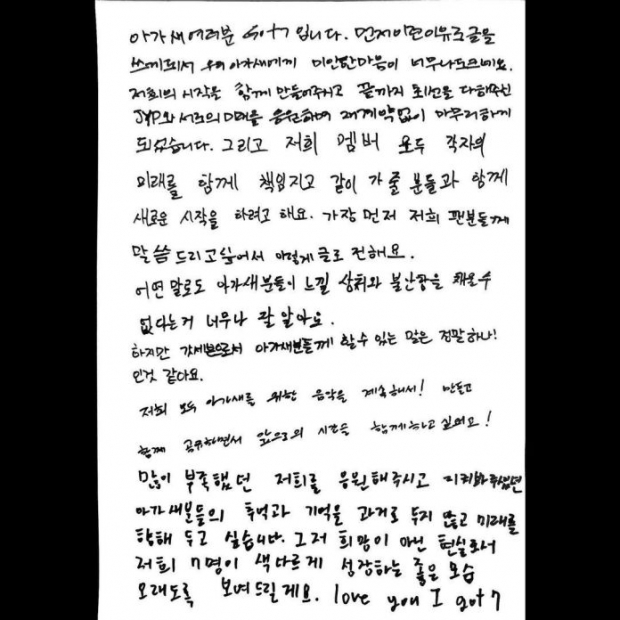 아가새여러분 Got7 입니다. 먼저이런이유로글을
쓰게되서 우리 아가새에게 미안한마음이 너무나도크네요.
저희의 시작을 함께 만들어주시고 끝까지 최선을 다해주신
JYP와 서로의 미래를 응원하며 재계약없이 마무리하게
되었습니다. 그리고 저희 멤버 모두 각자의
미래를 함께 책임지고 같이 가줄 분들과 함께
새로운 시작을 하려고 해요. 가장 먼저 저희 팬분들께
말씀 드리고싶어서 이렇게 글로 전해요.
어떤 말로도 아가새분들이 느낄 상처와 불안감을 채울수
없다는거 너무나 잘 알아요.
하지만 갓세븐으로서 아가새분들께 할수 있는 말은 정말하나!
인것 같아요.
저희 모두 아가새를 위한 음악을 계속해서! 만들고
함께 공유하면서 앞으로의 시간을 함께하고 싶어요!
많이 부족했던 저희를 응원해주시고 지켜봐주셨던
아가새분들의 추억과 기억을 과거로 두지 않고 미래를
향해 두고 싶습니다. 그저 희망이 아닌 현실로서
저희 7명이 색다르게 성장하는 좋은 모습
오래도록 보여드릴게요. love you I got7